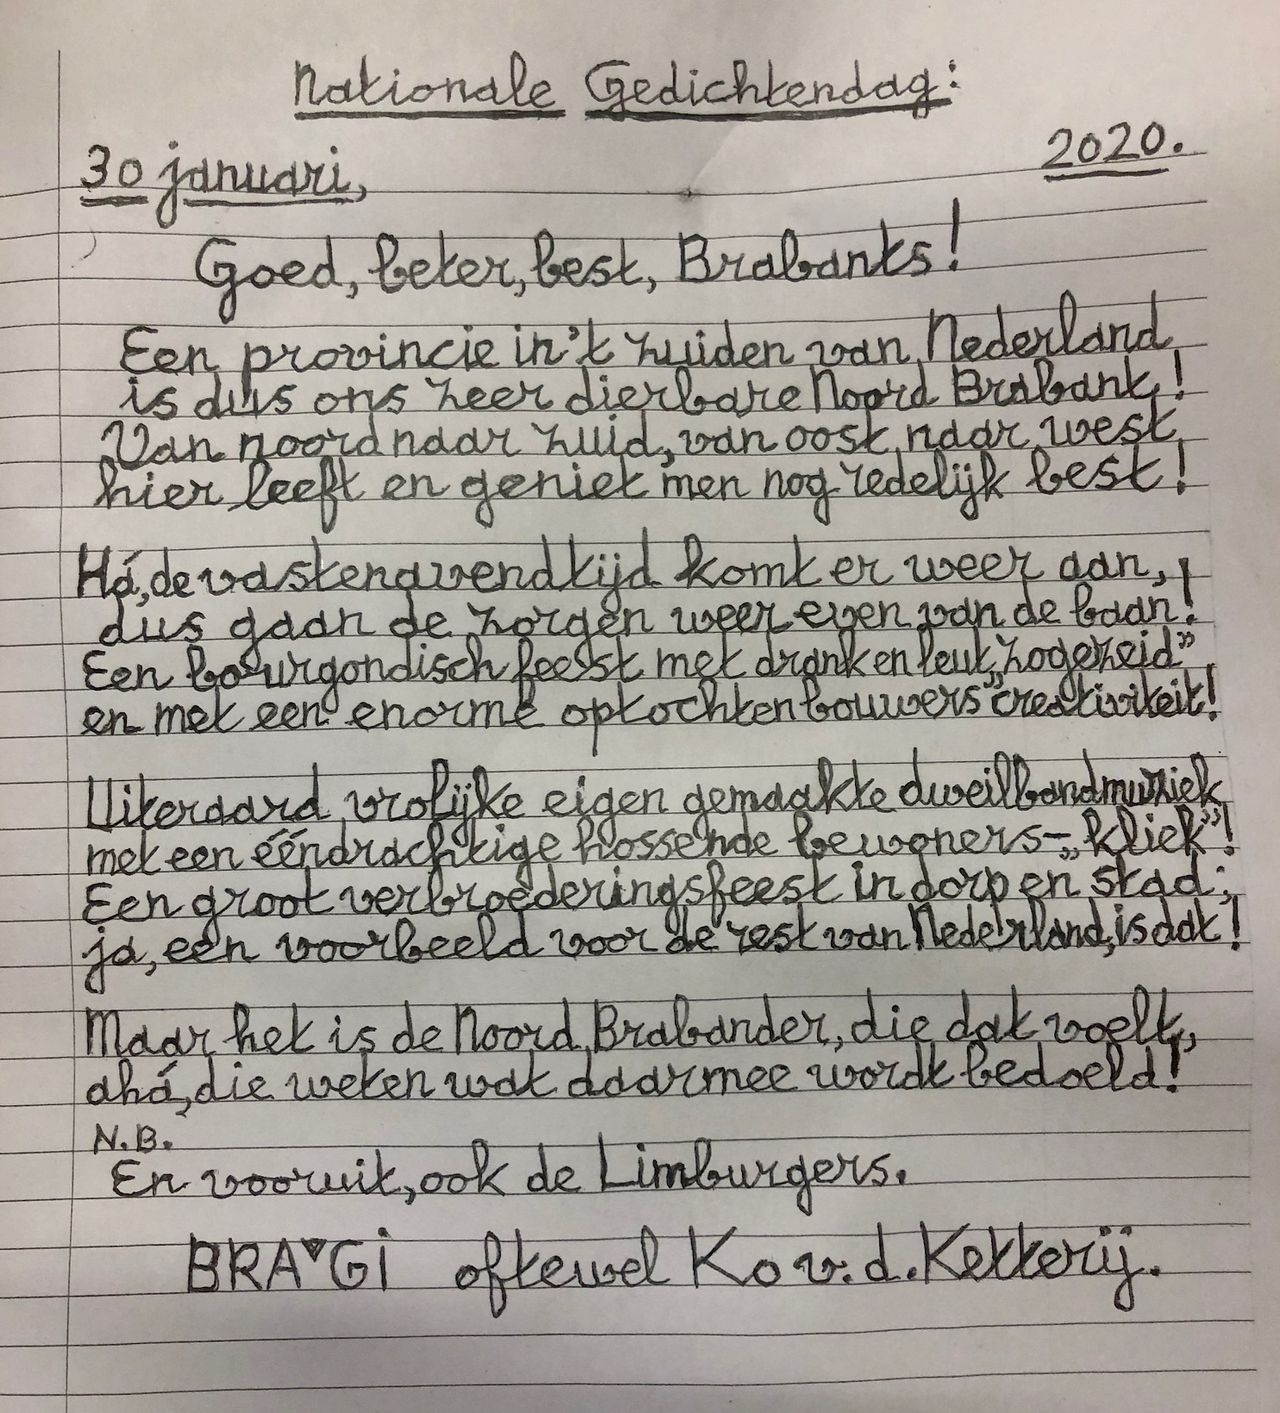 Nationale Gedichtendag:
30 januari, 2020.
Goed, beter, best, Brabants!
Een provincie in 't zuiden van Nederland
is dus ons zeer dierbare Noord Brabant!
Van noord naar zuid, van oost naar west
hier leeft en geniet men nog redelijk best!
Há, de vastenavendtijd komt er weer aan,
dus gaan de zorgen weer even van de baan!
Een bourgondisch feest met drank en leut „zogezeid”
en met een enorme optochtenbouwers "creativiteit!
Uiteraard vrolijke eigen gemaakte dweilbandmuziek
met een ééndrachtige hossende bewoners-„kliek”!
Een groot verbroederingsfeest in dorp en stad;
ja, een voorbeeld voor de rest van Nederland, is dat!
Maar het is de Noord Brabander, die dat voelt,
ahá, die weten wat daarmee wordt bedoeld!
N.B.
En vooruit, ook de Limburgers.
BRA♥GI oftewel Ko v.d. Ketterij.